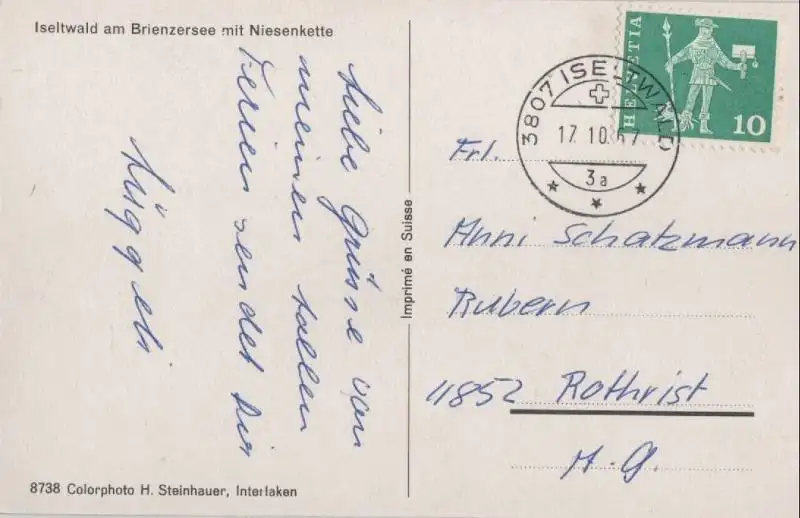 Iseltwald am Brienzersee mit Niesenkette
Liebe Grüsse von
meinen tollen
Ferien sendet dir
Lüggeli
8738 Colorphoto H. Steinhauer, Interlaken
Imprimé en Suisse
HELVETIA
10
3807 ISELTWALD
17.10.67
3a
Frl.
Anni Schatzmann
Rubern
4852 Rothrist
A.G.